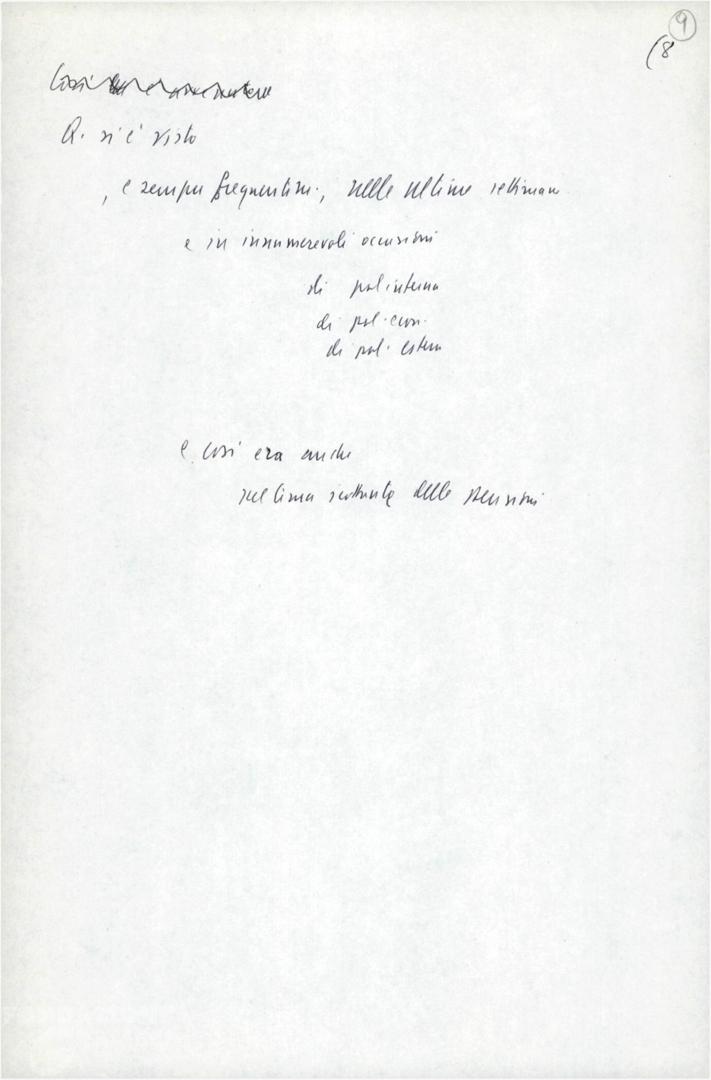 9
(8
Così
Q. si è visto
, e sempre frequentem., nelle ultime settimane
e in innumerevoli occasioni
di pol. interna
di pol. econ.
di pol. estera
e così era anche
nel clima delle